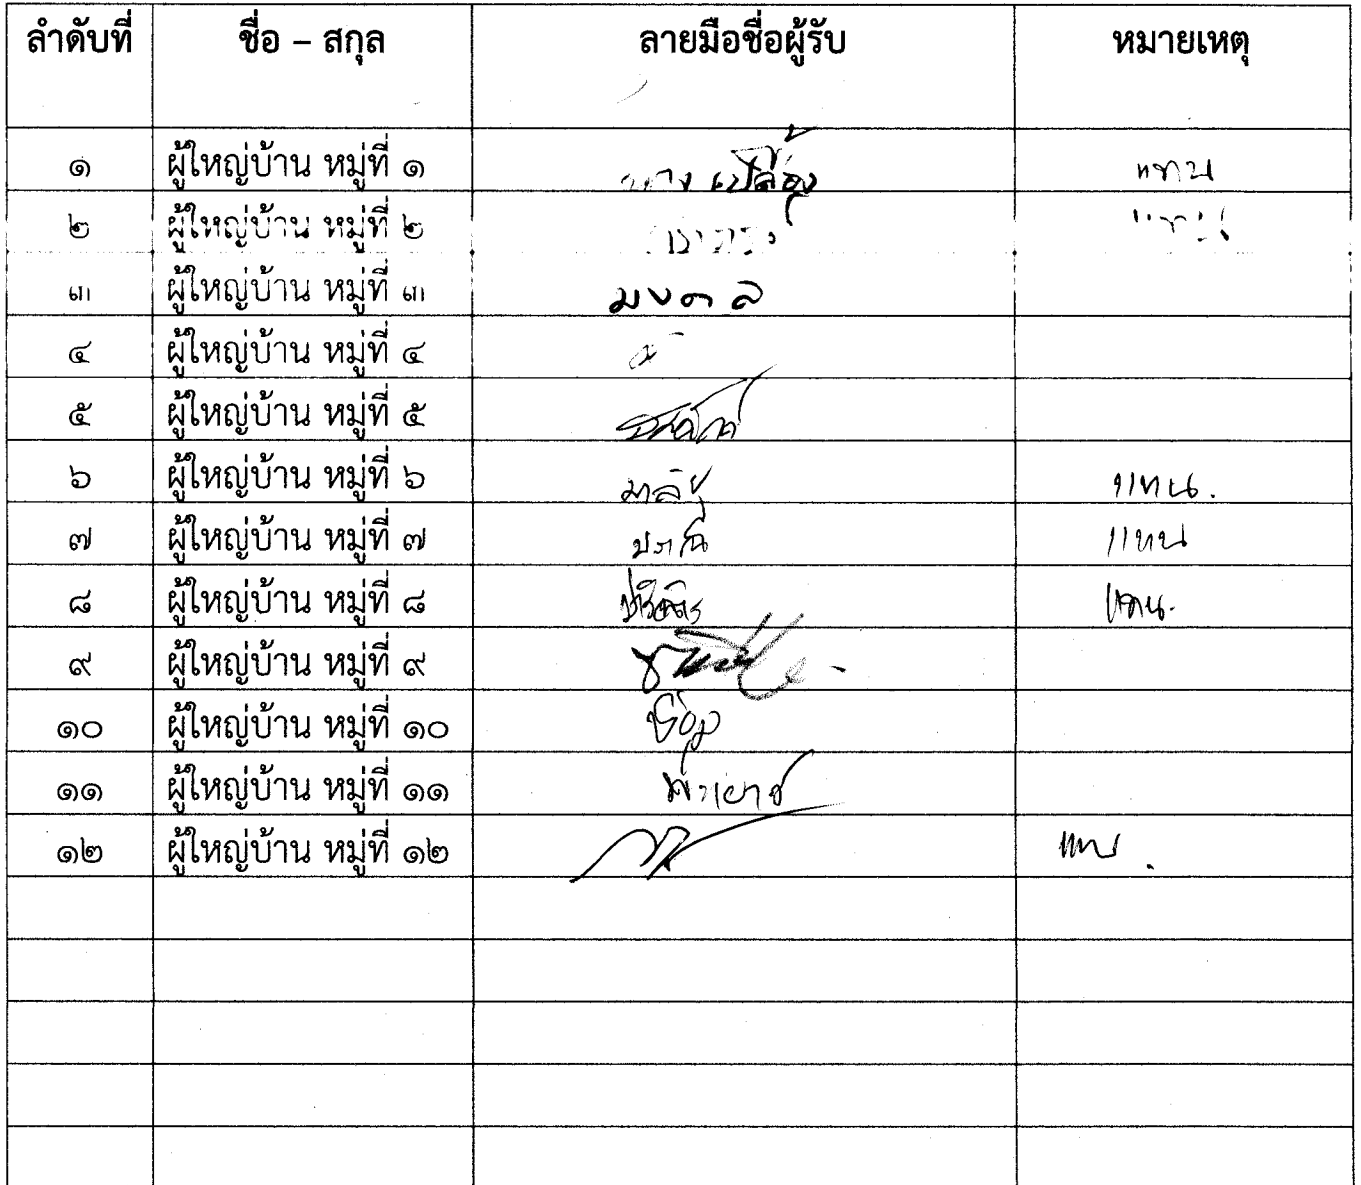 ลำดับที่ ชื่อ – สกุล ลายมือชื่อผู้รับ หมายเหตุ
๑ ผู้ใหญ่บ้าน หมู่ที่ ๑ นาง แทน
๒ ผู้ใหญ่บ้าน หมู่ที่ ๒ แทน
๓ ผู้ใหญ่บ้าน หมู่ที่ ๓ มงคล
๔ ผู้ใหญ่บ้าน หมู่ที่ ๔
๕ ผู้ใหญ่บ้าน หมู่ที่ ๕
๖ ผู้ใหญ่บ้าน หมู่ที่ ๖ แทน.
๗ ผู้ใหญ่บ้าน หมู่ที่ ๗ แทน
๘ ผู้ใหญ่บ้าน หมู่ที่ ๘ แทน.
๙ ผู้ใหญ่บ้าน หมู่ที่ ๙
๑๐ ผู้ใหญ่บ้าน หมู่ที่ ๑๐
๑๑ ผู้ใหญ่บ้าน หมู่ที่ ๑๑
๑๒ ผู้ใหญ่บ้าน หมู่ที่ ๑๒ แทน.